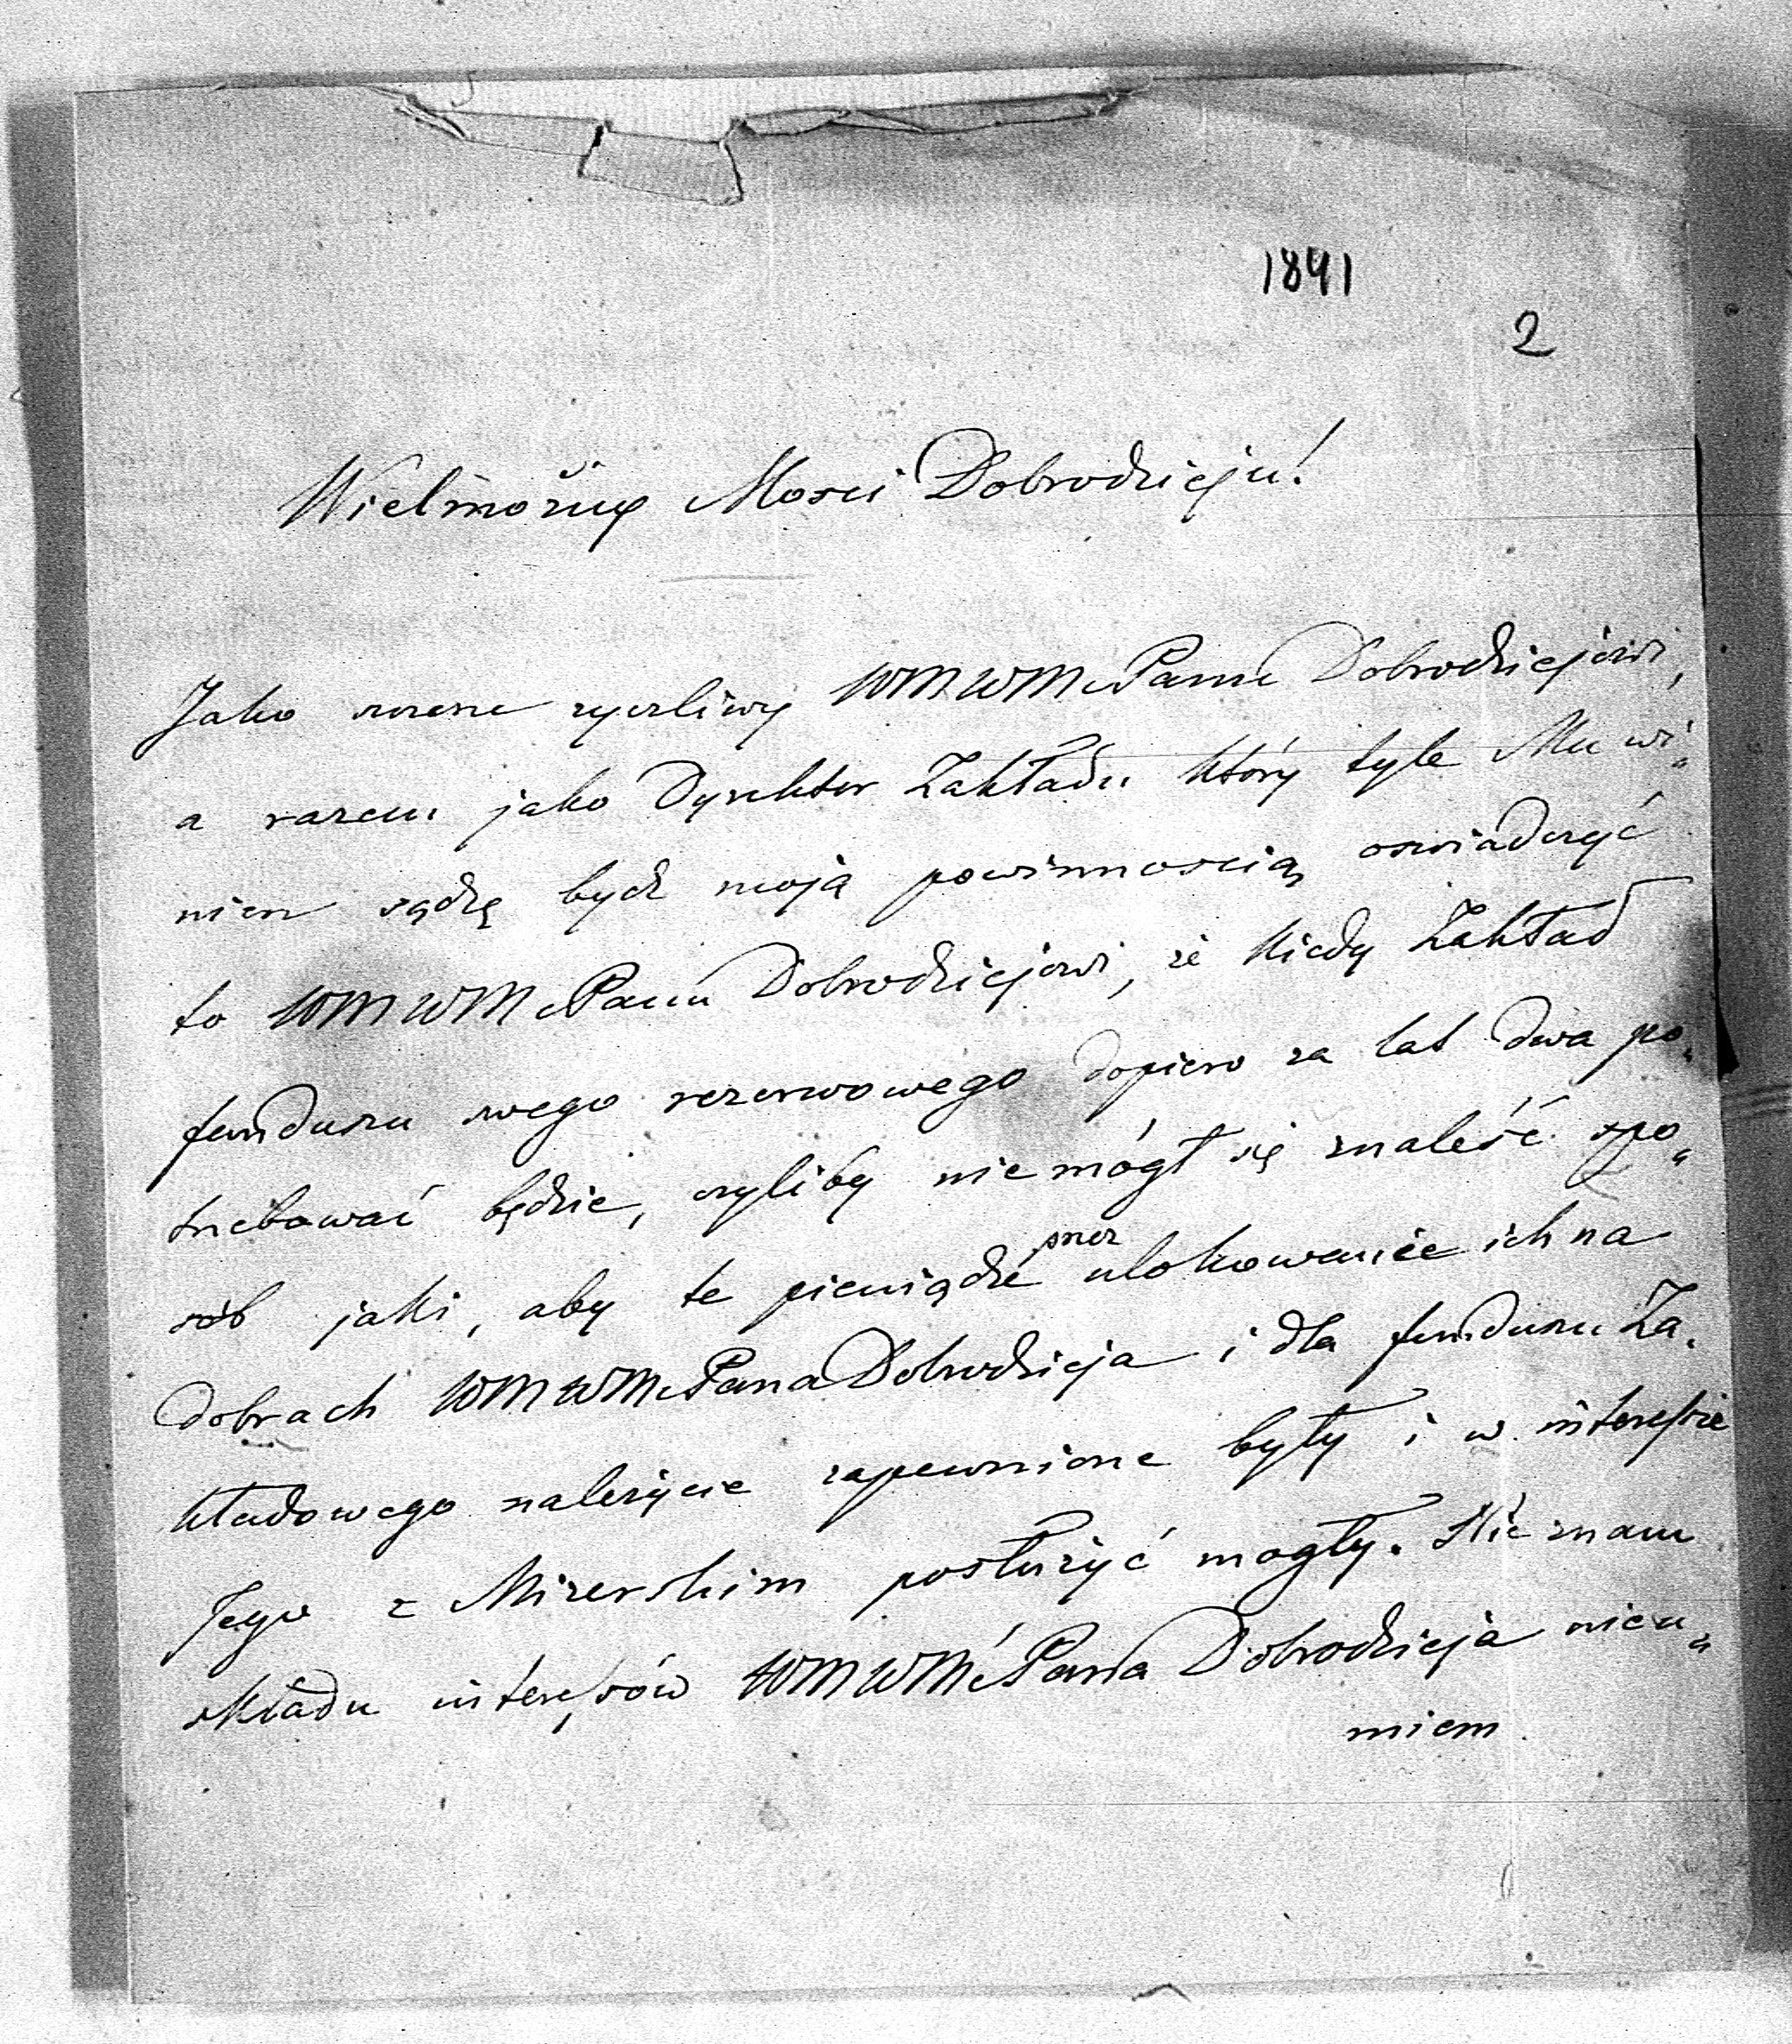 1841
2
Wielmożny Mosci Dobrodzieju!
Jako szczerze życzliwy WMWMPanu Dobrodziejowi,
a razem jako Dyrektor Zakładu który tyle Mu wi„
nien sądzę bydź moją powinnoscią oswiadczyć
to WMWMPanu Dobrodziejowi, że kiedy Zakład
funduszu swego rezerwowego dopiero za lat dwa po„
trzebować będzie, czyliby nie mógł się znaleść spo„
sób jaki, aby te pieniądze przez ulokowanie ich na
dobrach WMWMPana Dobrodzieja i dla funduszu Za„
kładowego należycie zapewnione były i w interessie
Jego z Mizerskim posłużyć mogły. Nie znam
składu interessów WMWMPana Dobrodzieja nieu„
miem